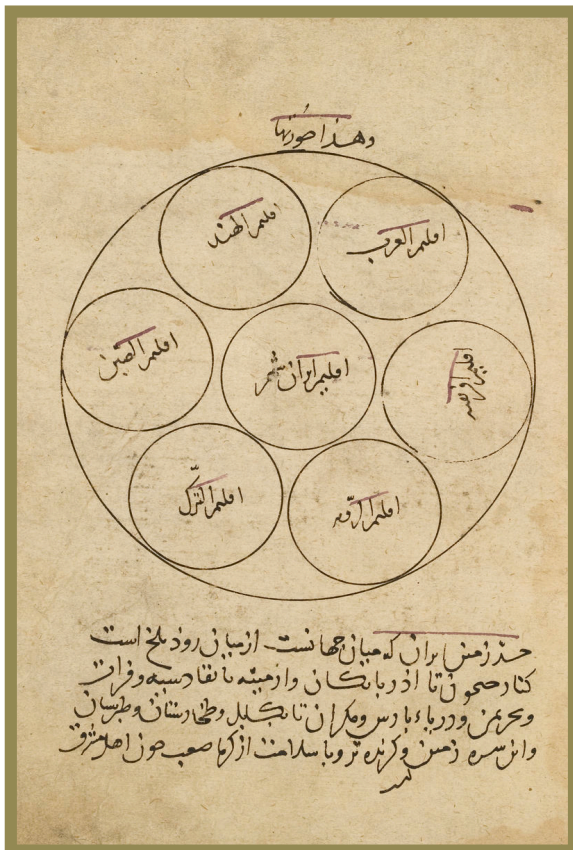 وهذا صورتها
اقليم العرب
اقليم الهند
اقليم
اقليم ايران شهر
اقليم الصين
اقليم الروم
اقليم الترك
حد زمين ايران که ميان جهانست از ميان رود بلخ است
کنار جيحون تا اذربايکان وارمينه تا بقادسيه وفرات
وبحر يمن ودرياء پارس ومکران تا بکابل وطخارستان وطبرستان
واين سره زمين وکزيده تر وباسلامت از کرما صعب چون اهل مشرق